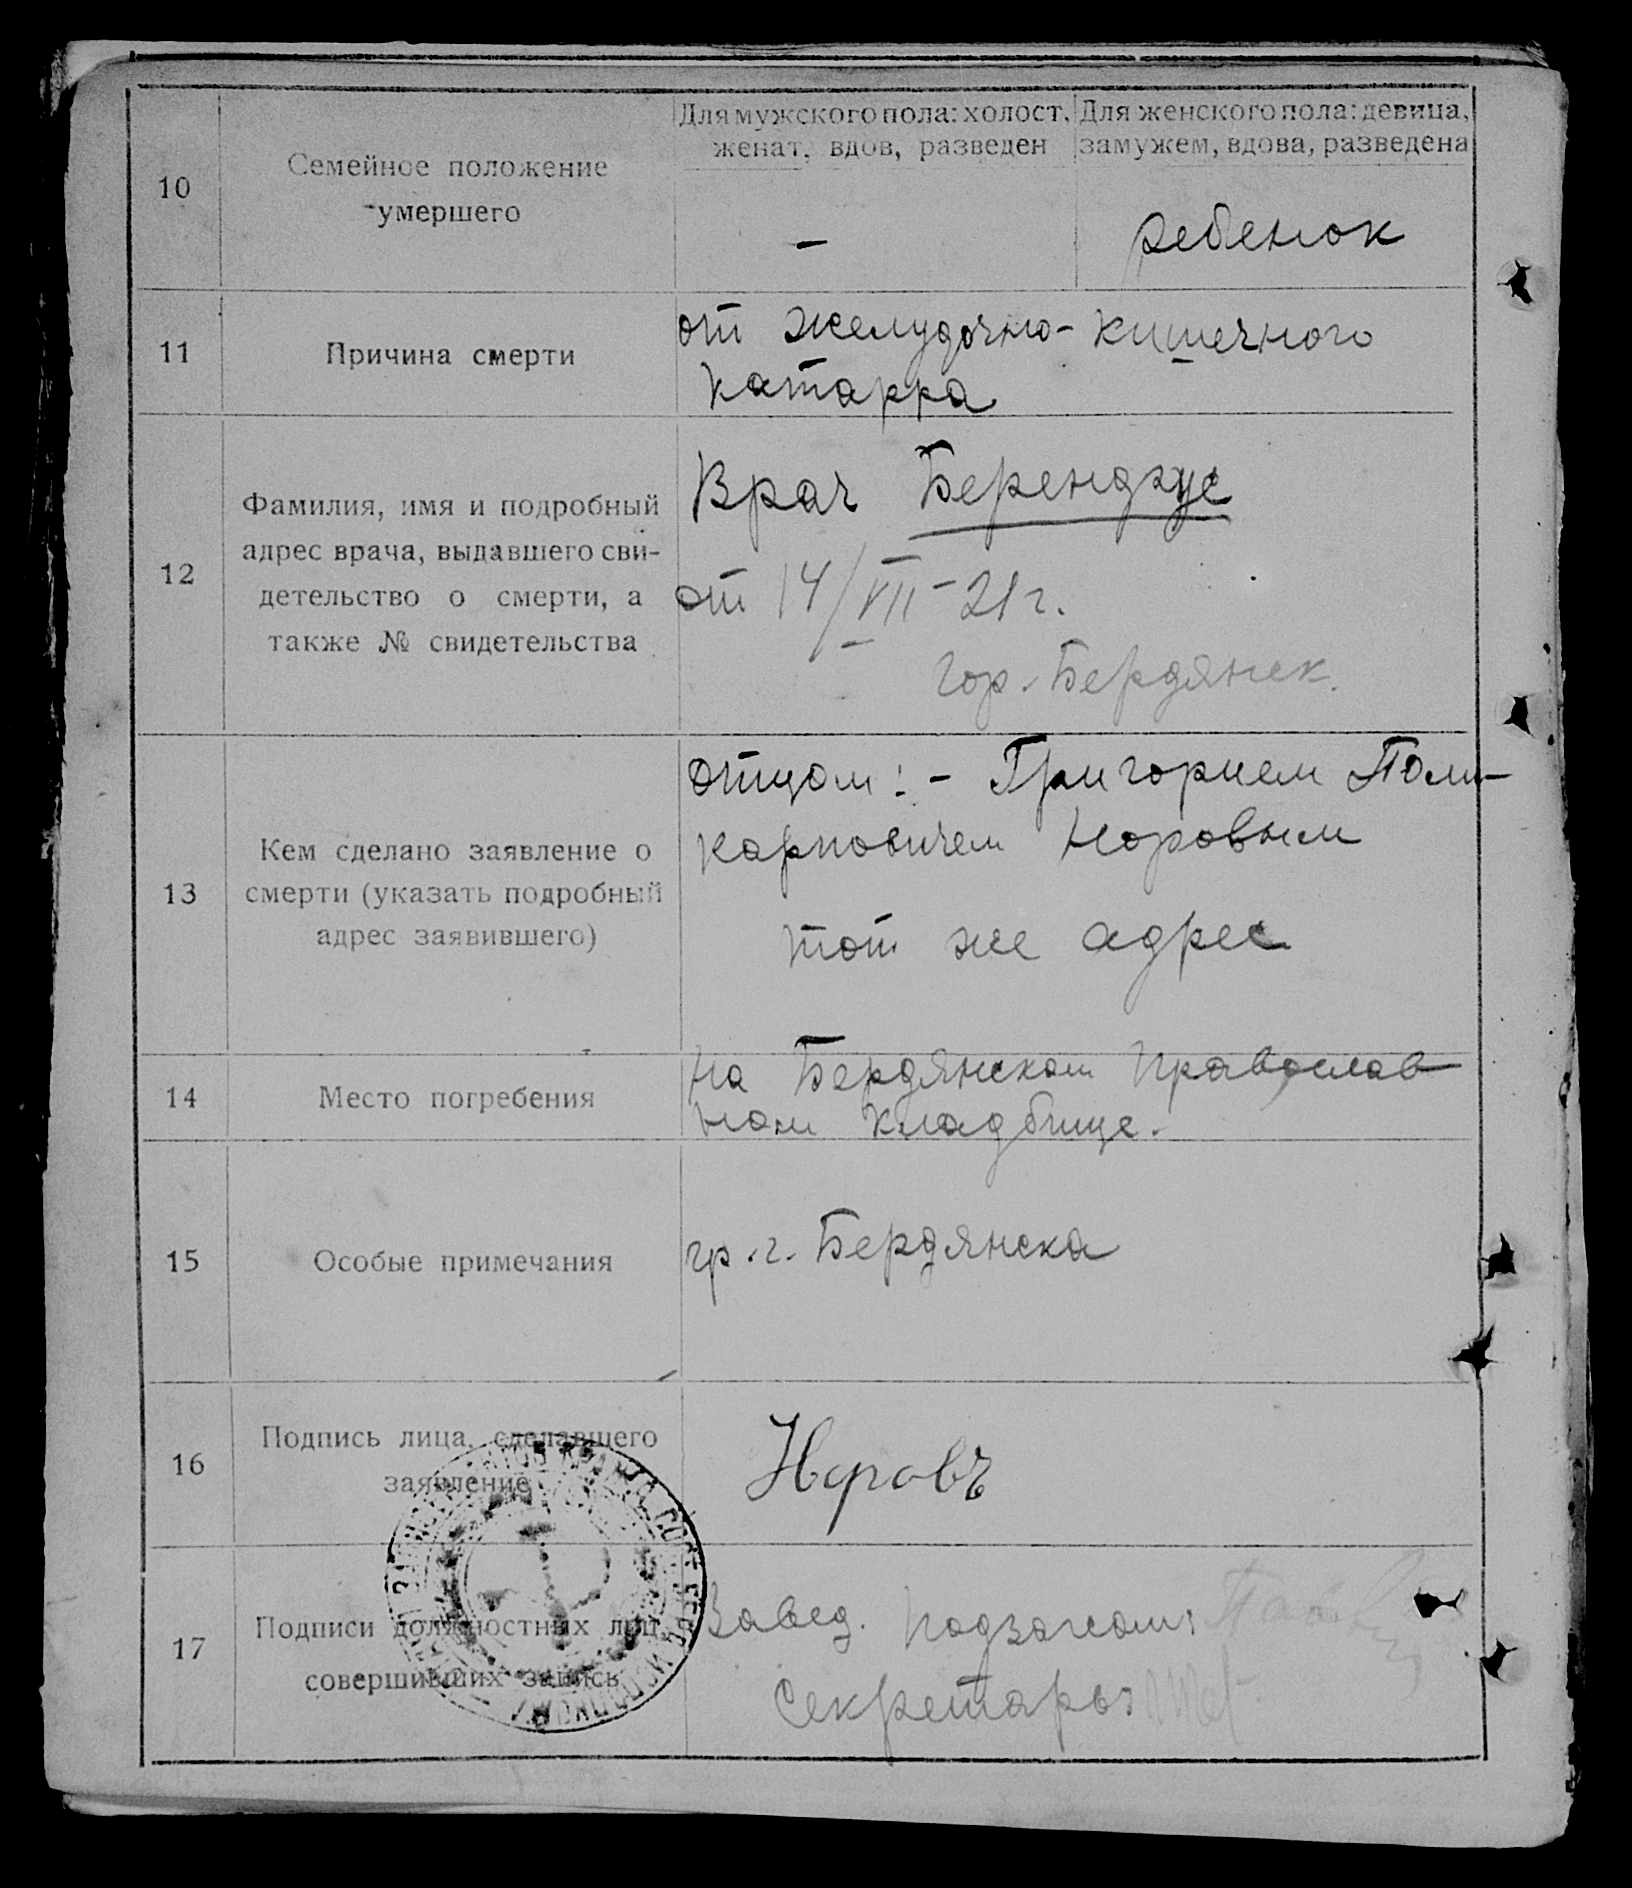 10
Семейное положение
умершего
Для мужского пола: холост,
женат, вдов, разведен
Для женского пола: девица,
замужем, вдова, разведена
—
ребенок
11
Причина смерти
от желудочно-кишечного
катарра
12
Фамилия, имя и подробный
адрес врача, выдавшего сви-
детельство о смерти, а
также № свидетельства
Врач
от 14/VII-21г.
гор. Бердянск.
13
Кем сделано заявление о
смерти (указать подробный
адрес заявившего)
отцом: - Григорием Поли-
карповичем Норовым
тот же адрес
14
Место погребения
на Бердянском Православ
ном кладбище.
15
Особые примечания
гр. г. Бердянска
16
Подпись лица, сделавшего
заявление
Норовъ
17
Подписи должностных лиц,
совершивших запись
Завед. Подзагсом:
Секретарь: